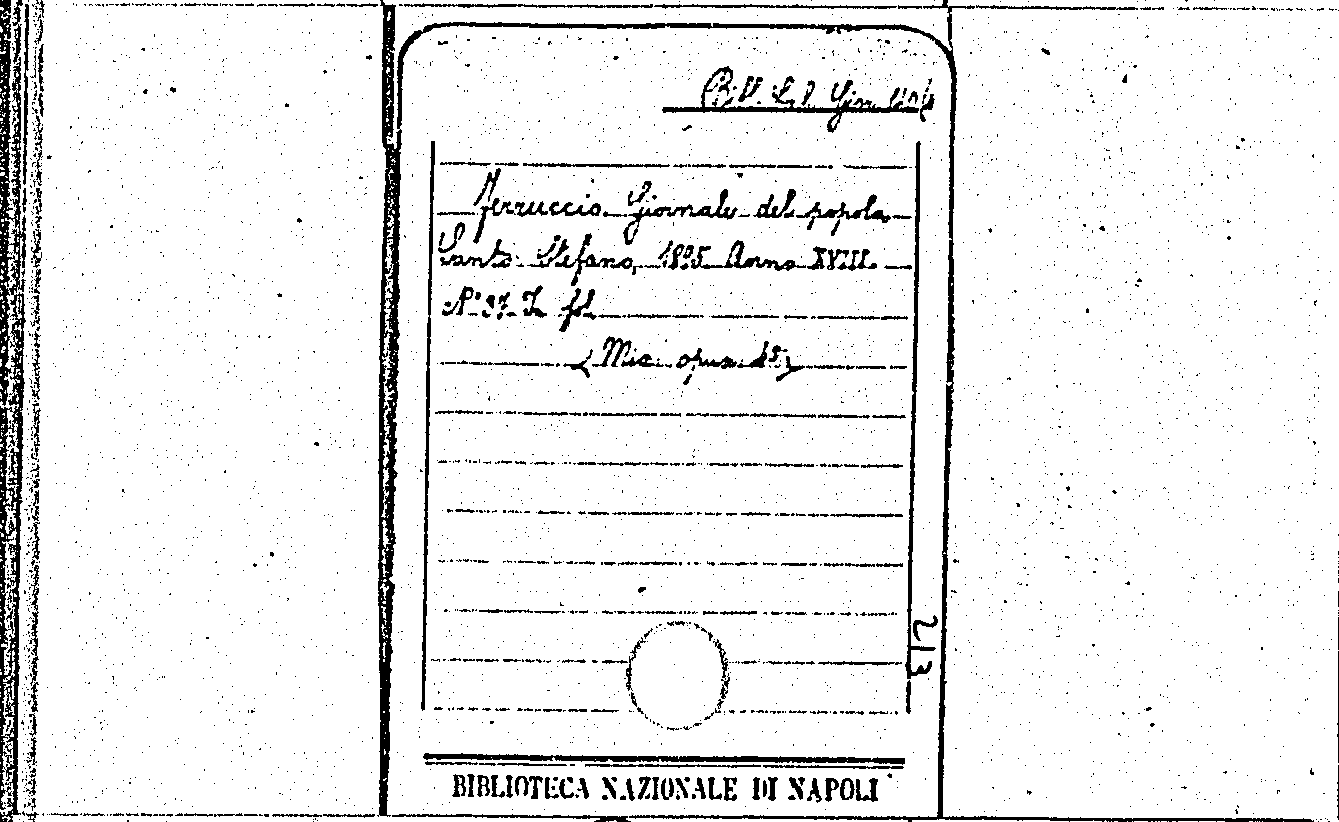 Ferruccio. Giornale del popolo
Santo Stefano, 1895 Anno XVIII.
N.° 37. In fol.
(Misc. opusc. 45)
213
BIBLIOTECA NAZIONALE DI NAPOLI